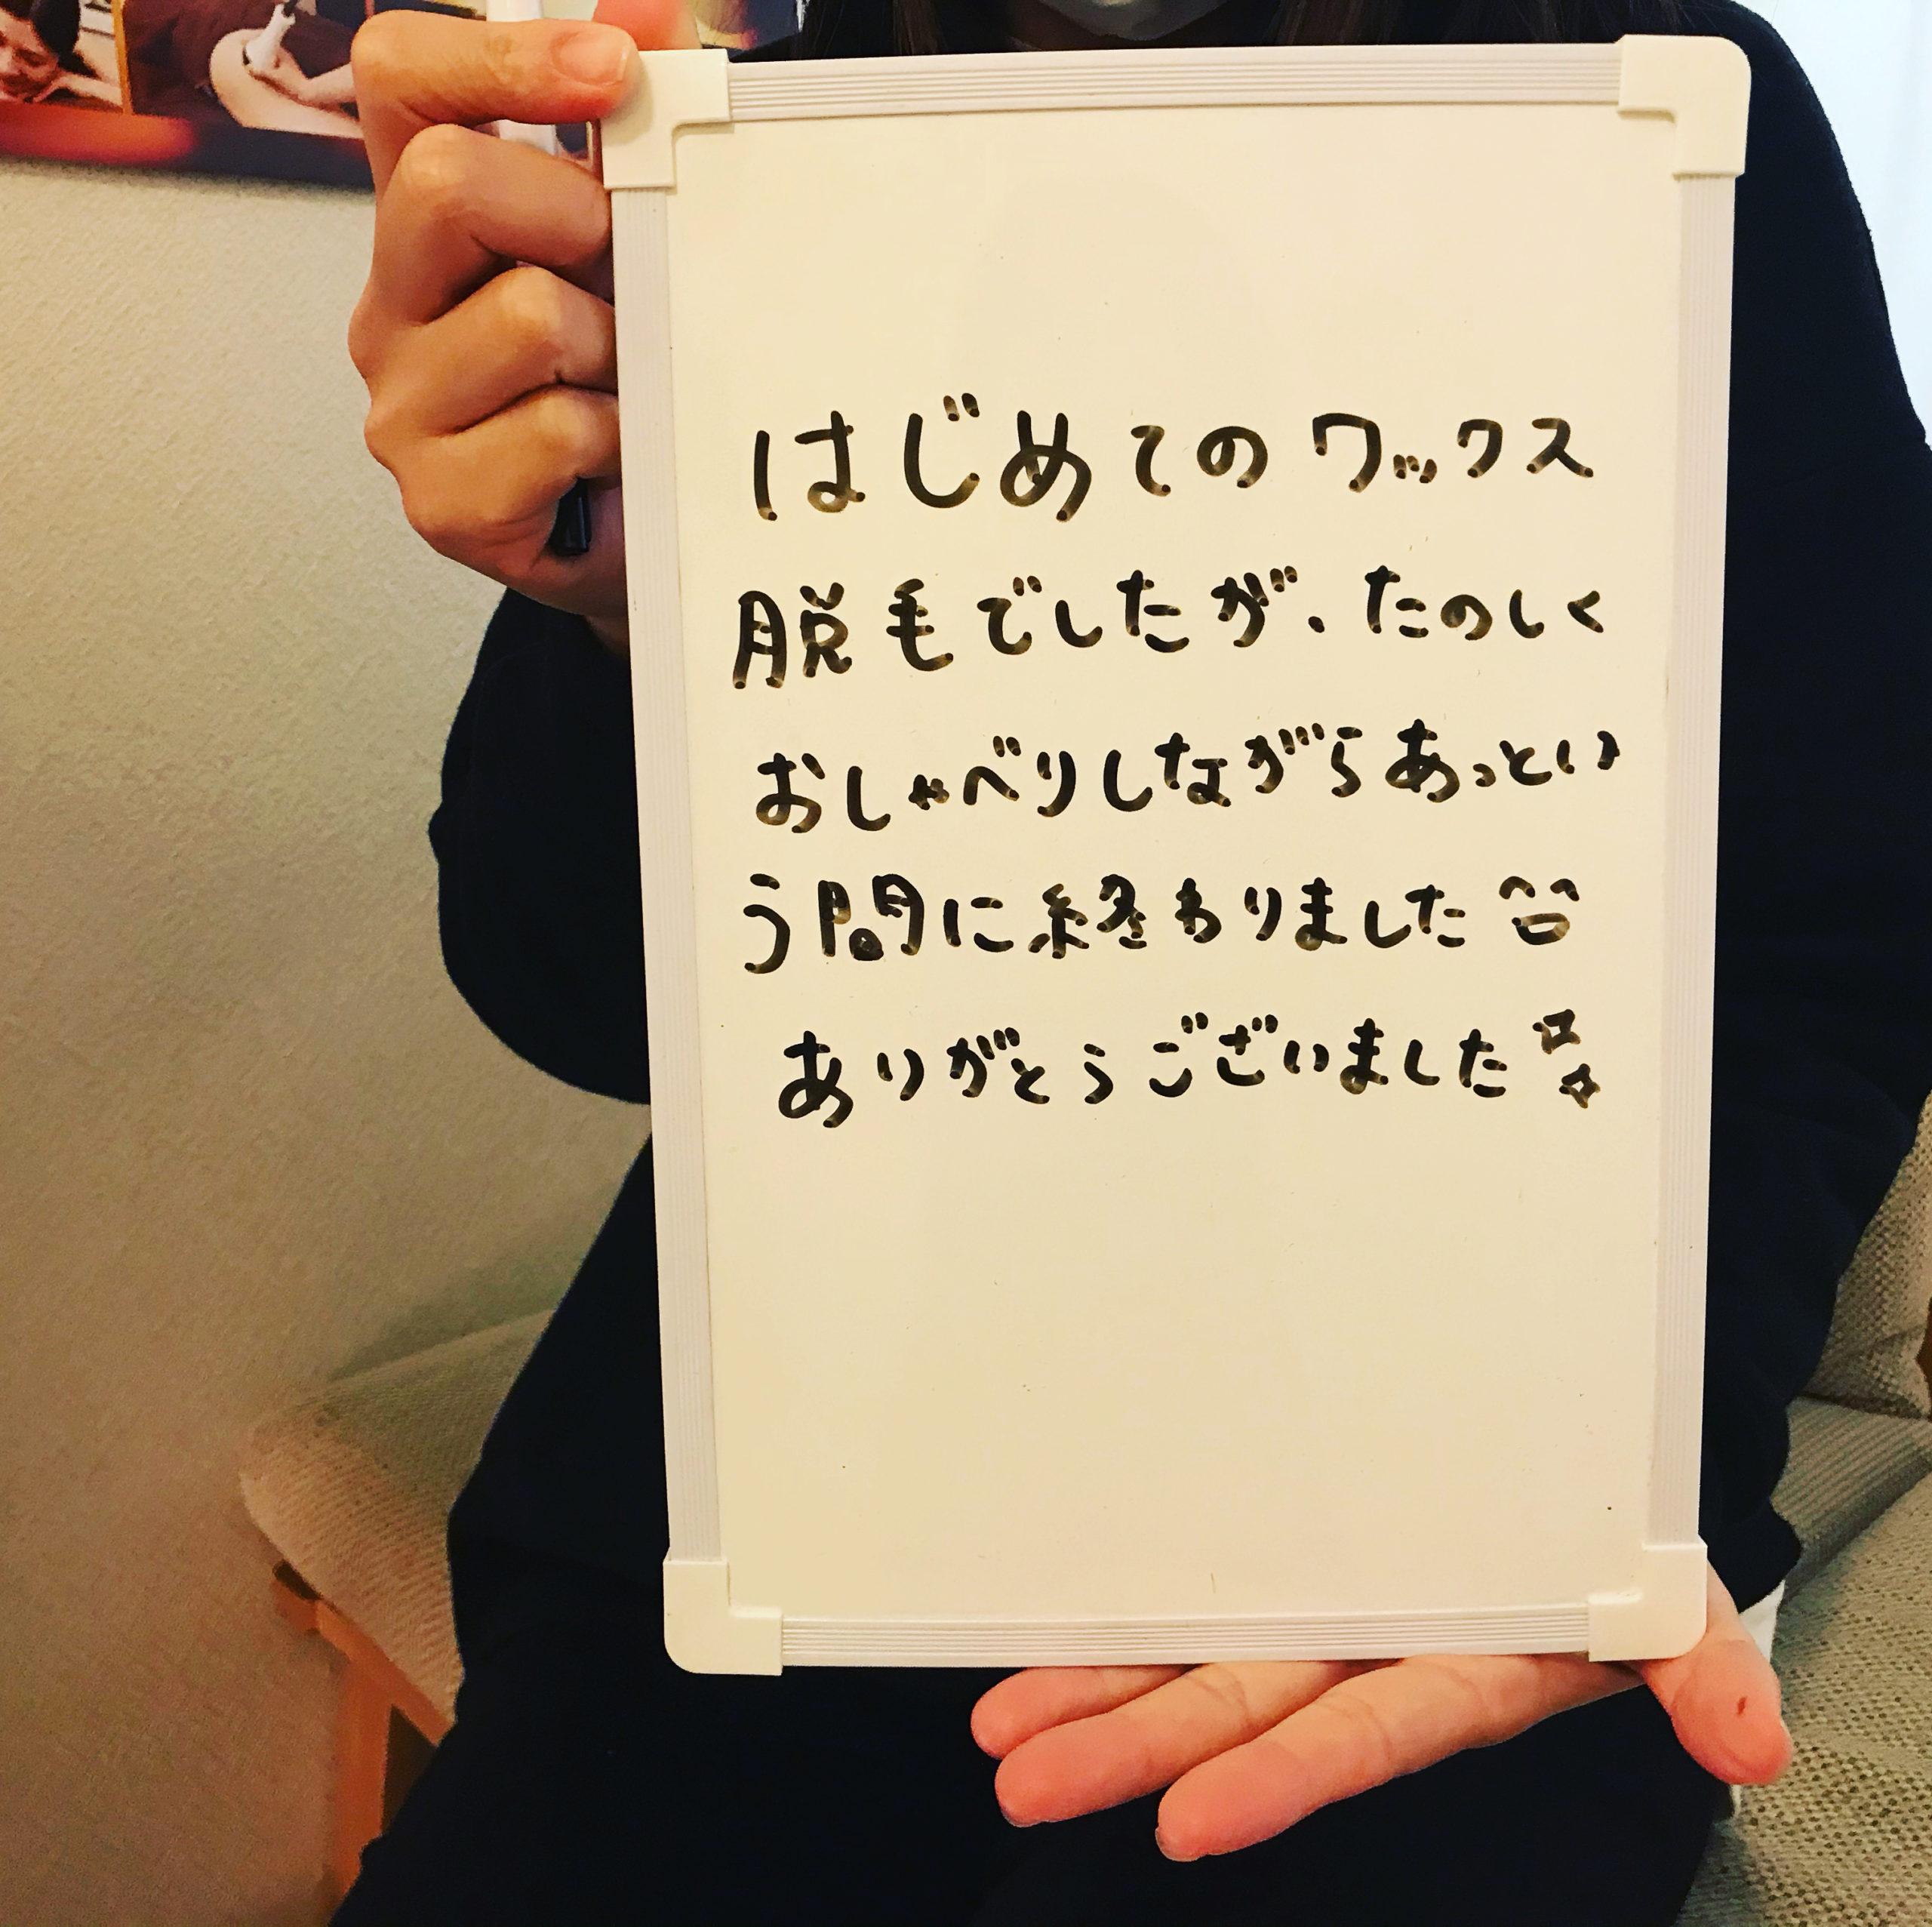 はじめてのワックス
脱毛でしたが、たのしく
おしゃべりしながらあっとい
う間に終わりました
ありがとうございました